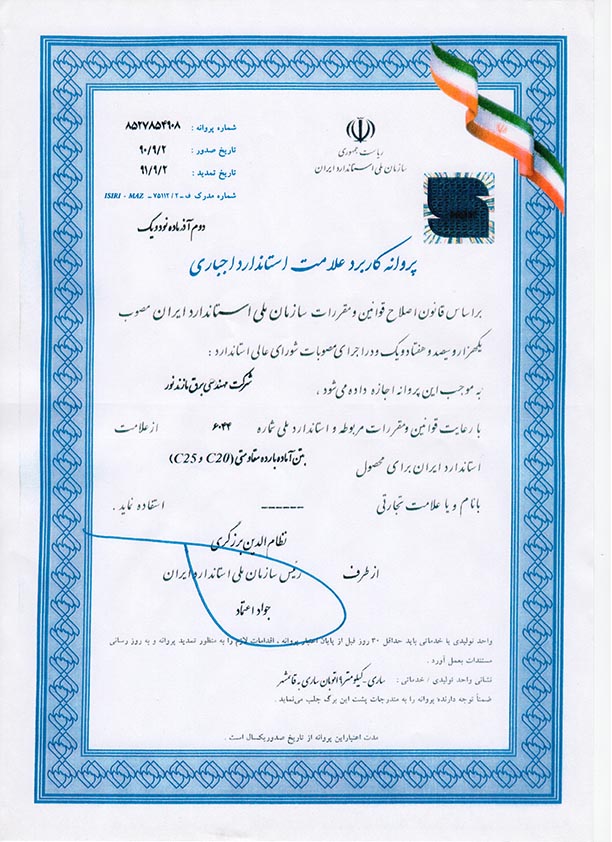 ریاست جمهوری
سازمان ملی استاندارد ایران
شماره پروانه : ۸۵۲۷۸۵۴۹۰۸
تاریخ صدور : ۹۰/۹/۲
تاریخ تمدید : ۹۱/۹/۲
شماره مدرک ف-۷۵۱۱۲/۲- ISIRI - MAZ
دوم آذرماه نود و یک
پروانه کاربرد علامت استاندارد اجباری
براساس قانون اصلاح قوانین و مقررات سازمان ملی استاندارد ایران مصوب
یکهزار و سیصد و هفتاد و یک و در اجرای مصوبات شورای عالی استاندارد :
به موجب این پروانه اجازه داده می‌شود , شرکت مهندسی برق مازند نور
با رعایت قوانین و مقررات مربوطه و استاندارد ملی شماره ۶۰۴۴ از علامت
استاندارد ایران برای محصول بتن آماده با رده مقاومتی (C20 و C25)
با نام و با علامت تجارتی ------ استفاده نماید .
نظام الدین برزگری
از طرف رئیس سازمان ملی استاندارد ایران
جواد اعتماد
واحد تولیدی یا خدماتی باید حداقل ۳۰ روز قبل از پایان اعتبار پروانه ، اقدامات لازم را به منظور تمدید پروانه و به روز رسانی
مستندات بعمل آورد .
نشانی واحد تولیدی / خدماتی : ساری - کیلومتر ۹ اتوبان ساری - قائمشهر
ضمناً توجه دارنده پروانه را به مندرجات پشت این برگ جلب می‌نماید .
مدت اعتبار این پروانه از تاریخ صدور یکسال است .